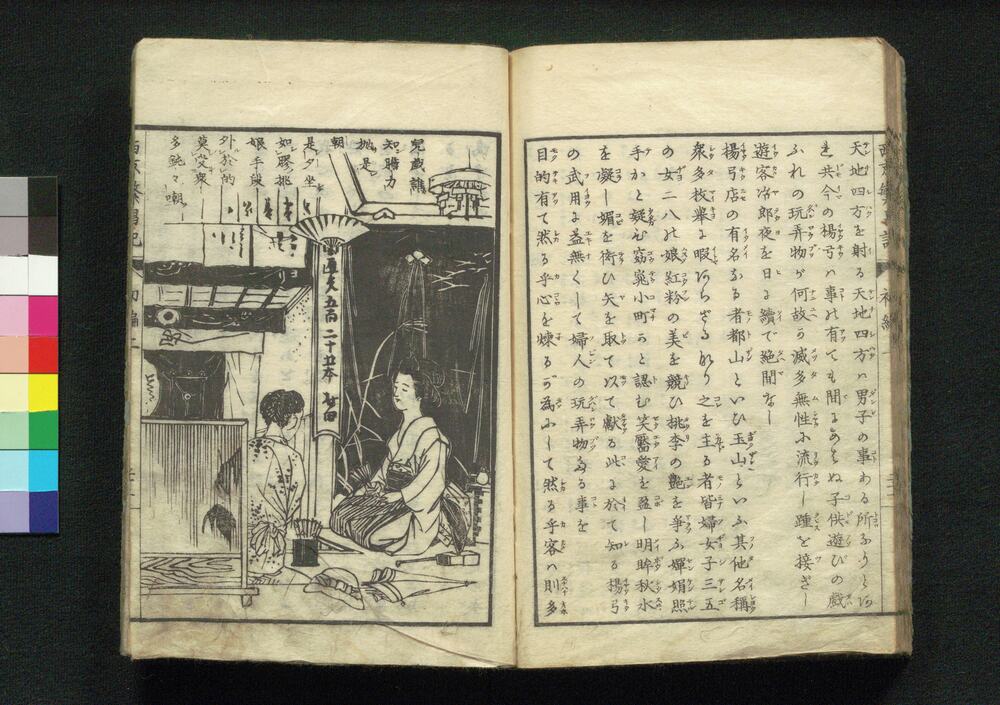 天地四方を射る天地四方ハ男子の事わる所なりと
共今の楊弓ハ事の有ても聞るあらね子供遊びの戯
ふれの玩弄物が何故か滅多無性に流行し踵を接ぎし
遊客冶郎夜を日に續で絶間なし
楊弓店の有名なる者都山といひ玉山といふ其他名稱
衆多枚擧に暇あらざるなり之を主る者皆婦女子三五
の女二八の娘紅粉の美を競ひ桃李の艶を爭ふ嬋娟照
手かと疑ひ窈窕小町かと認む笑靨愛を盈し明眸秋水
を凝し媚を衒ひ矢を取て以て獻る此に於て知る楊弓
の武用に益無くして婦人の玩弄物なる事を
目的有て然る乎心を煉るが為にして然る乎客ハ則多
兒戲
知膽力
抛是
朝
是夕坐
如膠挑
娘手段
外於的
莫受衆
多鈍々嘲
五百
二十五本
初編